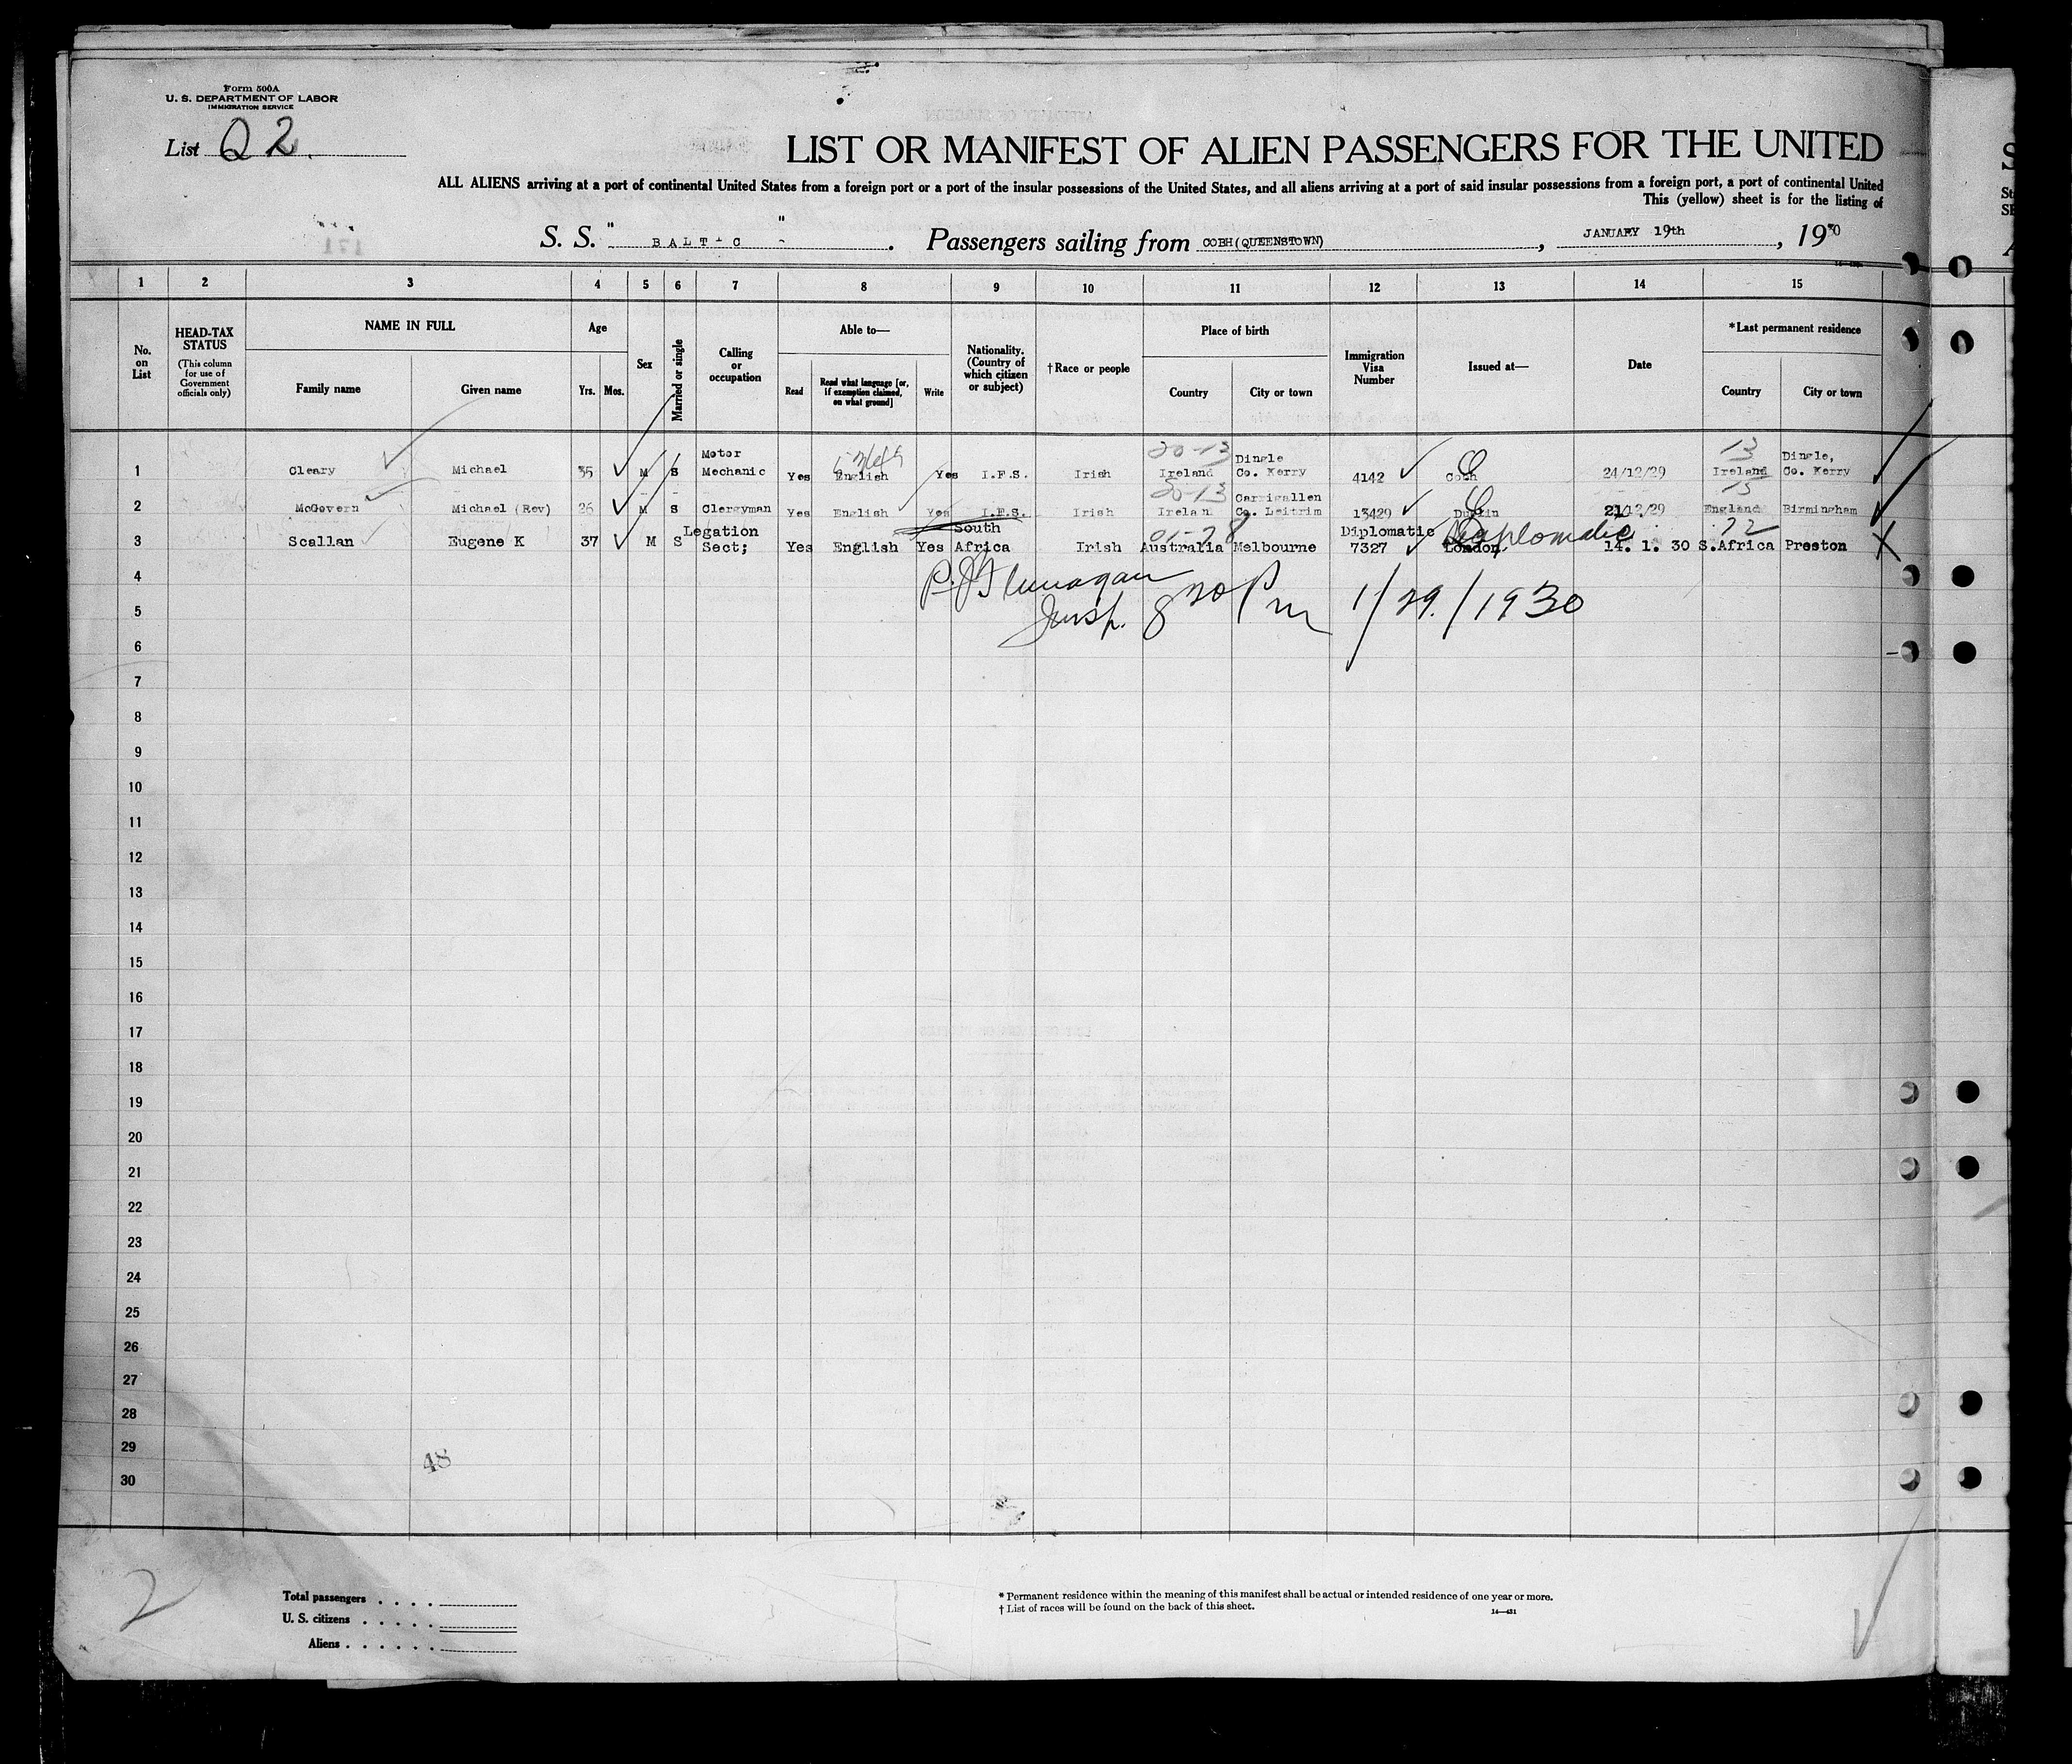 Form 500A
U. S. DEPARTMENT OF LABOR
IMMIGRATION SERVICE
List Q 2.
LIST OR MANIFEST OF ALIEN PASSENGERS FOR THE UNITED
ALL ALIENS arriving at a port of continental United States from a foreign port or a port of the insular possessions of the United States, and all aliens arriving at a port of said insular possessions from a foreign port, a port of continental United
This (yellow) sheet is for the listing of
S. S. " BALTIC ". Passengers sailing from COBH(QUEENSTOWN), JANUARY 19th, 1930
1 2 3 4 5 6 7 8 9 10 11 12 13 14 15
No. on List
HEAD-TAX STATUS
(This column for use of Government officials only)
NAME IN FULL
Family name Given name
Age
Yrs. Mos.
Sex
Married or single
Calling or occupation
Able to—
Read Read what language [or, if exemption claimed, on what ground] Write
Nationality. (Country of which citizen or subject)
†Race or people
Place of birth
Country City or town
Immigration Visa Number
Issued at—
Date
*Last permanent residence
Country City or town
1 Cleary Michael 35 M S Motor Mechanic Yes English Yes I.F.S. Irish 20-13 Ireland Dingle Co. Kerry 4142 Cobh 24/12/29 13 Ireland Dingle, Co. Kerry
2 McGovern Michael (Rev) 26 M S Clergyman Yes English Yes I.F.S. Irish 20-13 Irelan Carrigallen Co. Leitrim 13429 Dublin 21/12/29 15 England Birmingham
3 Scallan Eugene K 37 M S Legation Sect; Yes English Yes South Africa Irish Australia Melbourne Diplomatic 7327 London, Diplomatic 14. 1. 30 22 S.Africa Preston
4
5
P. J. Flunagan
Insp. 8 20 Pm 1/29./1930
6
7
8
9
10
11
12
13
14
15
16
17
18
19
20
21
22
23
24
25
26
27
28
29
30
48
2
Total passengers . . . .
U. S. citizens . . . . .
Aliens . . . . . .
* Permanent residence within the meaning of this manifest shall be actual or intended residence of one year or more.
† List of races will be found on the back of this sheet.
14—451